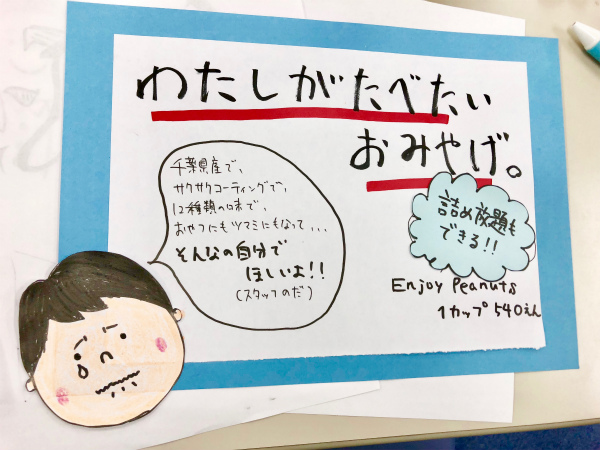 わたしがたべたい
おみやげ。
千葉県産で、
サクサクコーティングで、
12種類の味で、
おやつにもツマミにもなって...
そんなの自分で
ほしいよ!!
(スタッフのだ)
詰め放題も
できる!!
Enjoy Peanuts
1カップ 540えん